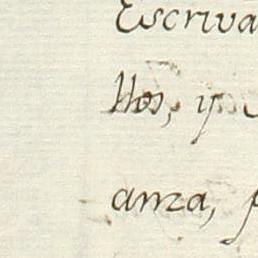 Escriva
llos, y
anza,